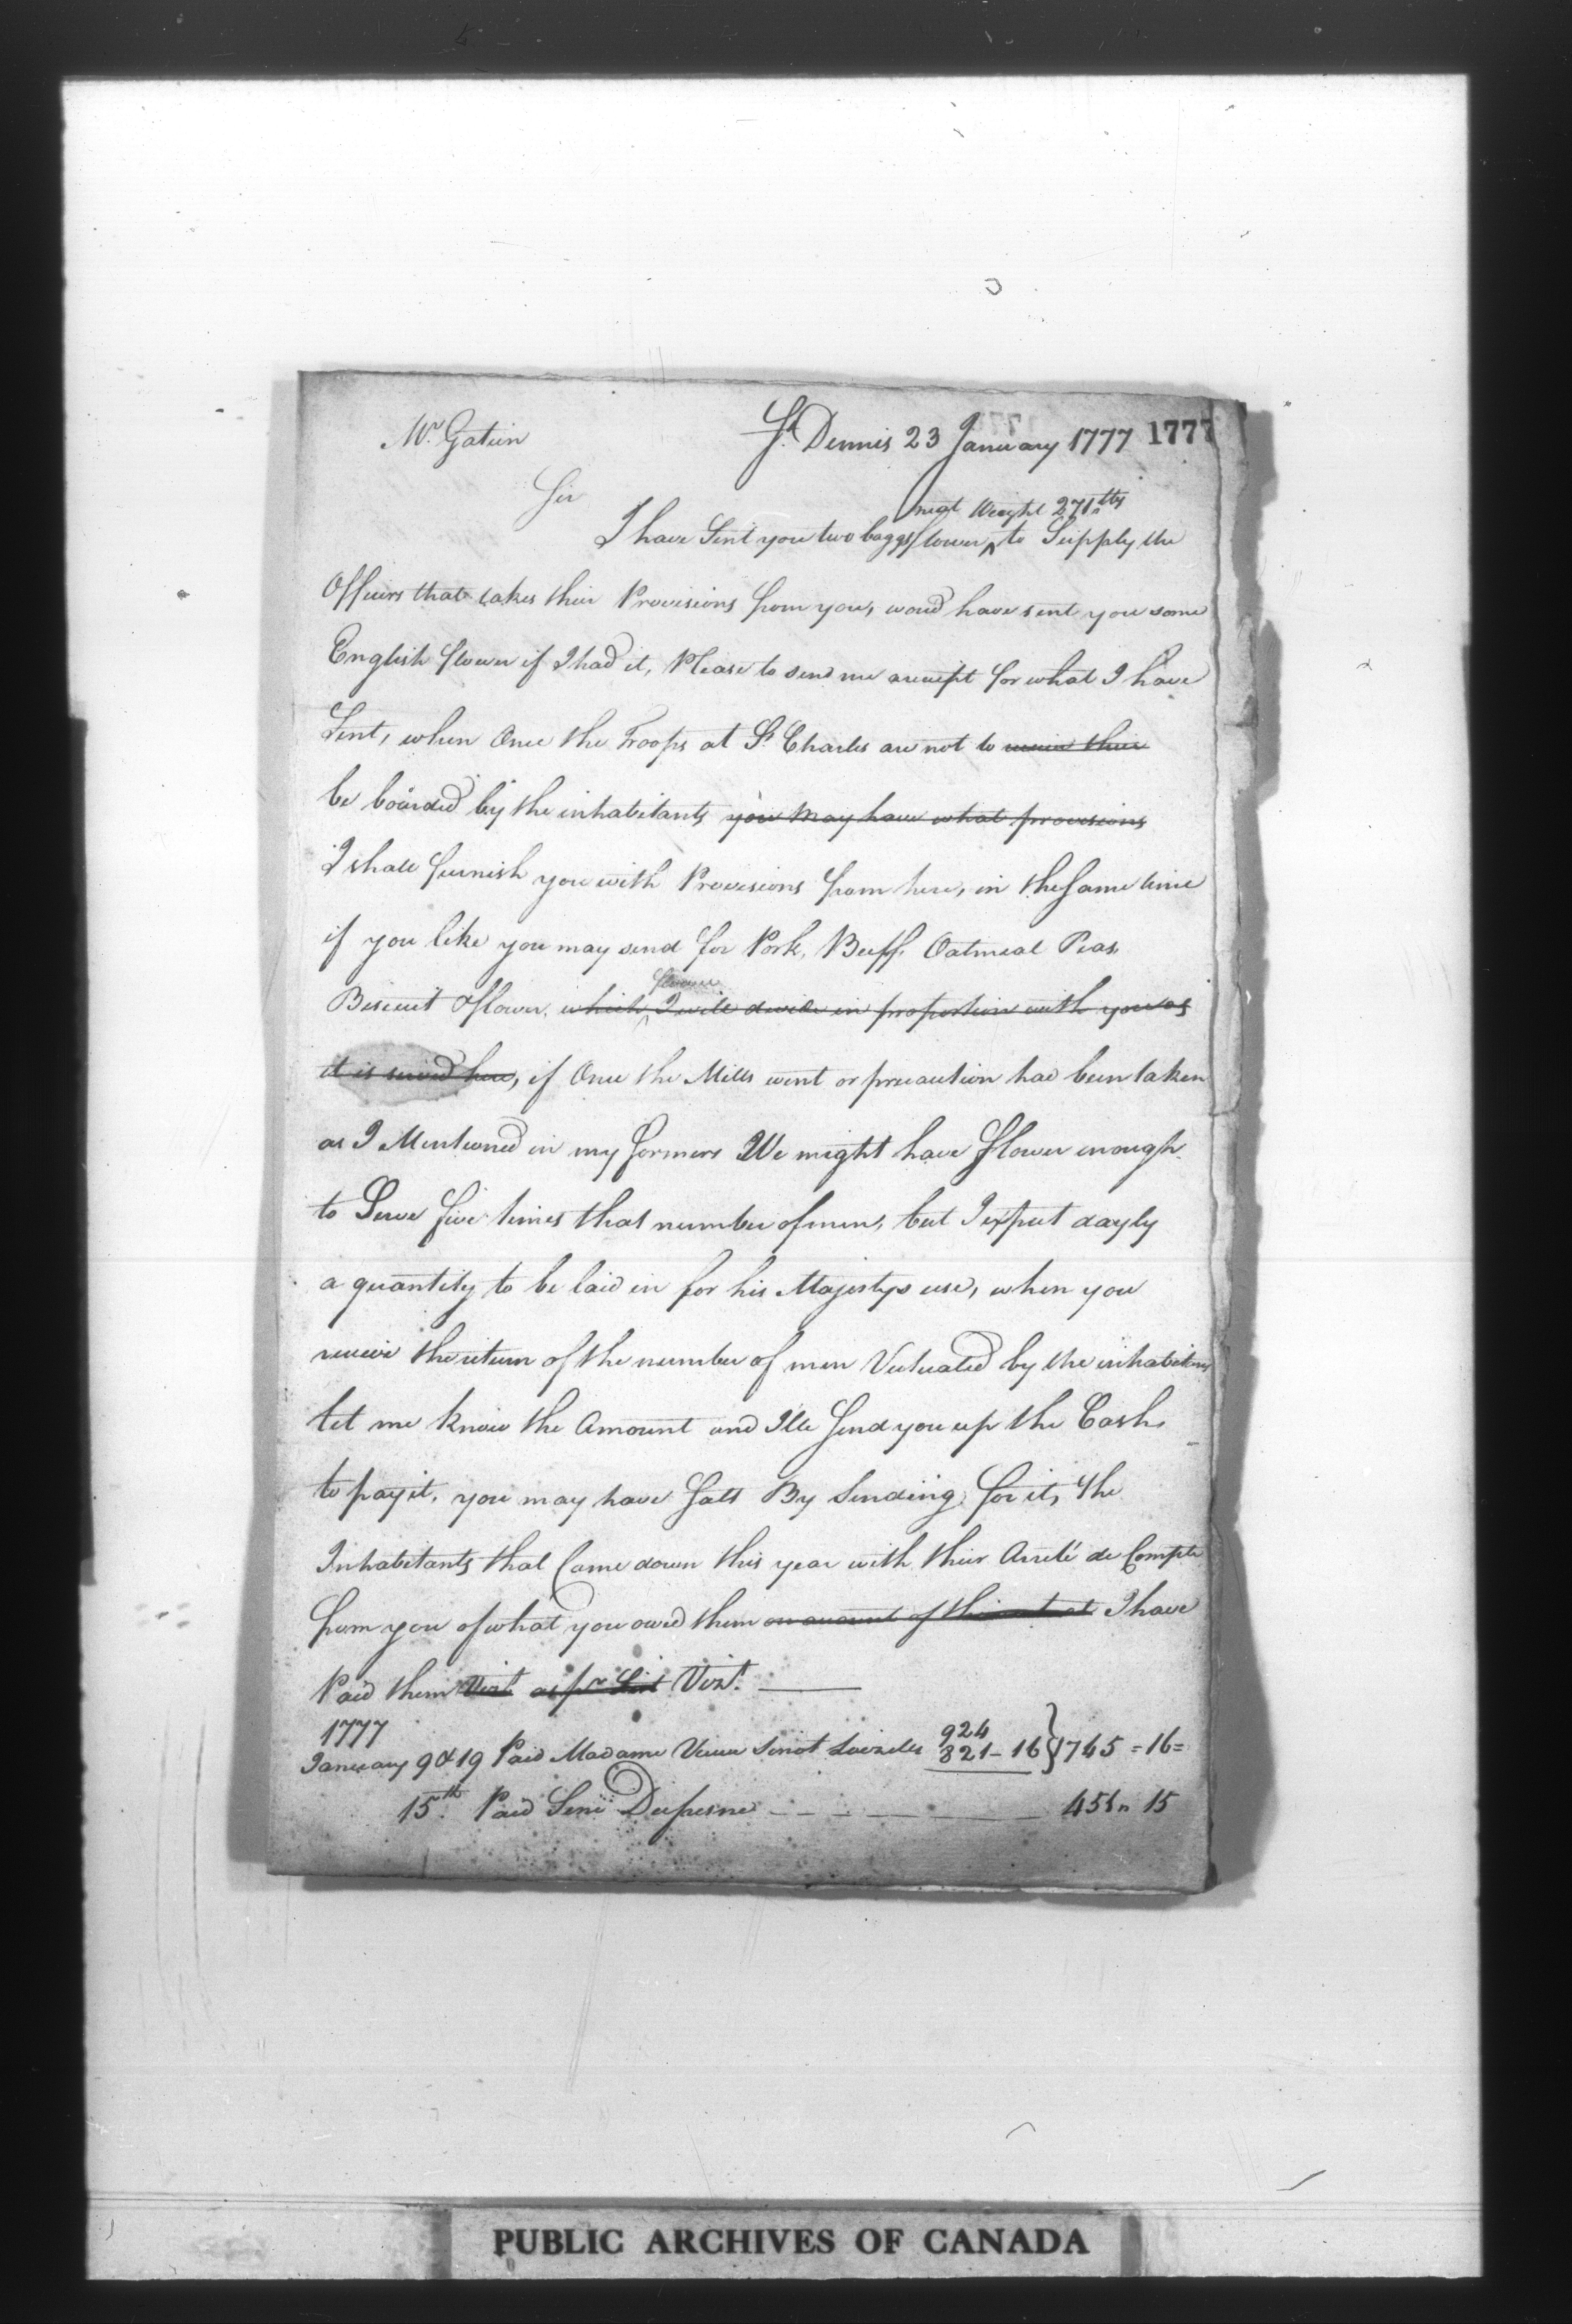 Mr. Gatien St. Dennis 23 January 1777 1777
Sir
neat Weight 271 lbs
I have Sent you two baggs flower to Supply the
Officers that takes their Provisions from you, woud have sent you some
English flower if I had it, Please to send me a receipt for what I have
Sent, when Once the Troops at St. Charles are not to receive their
be boarded by the inhabitants you may have what provisions
I shall furnish you with Provisions from here, in the same time
if you like you may send for Pork, Beeff, Oatmeal Peas,
flower
Biscuit & flower, which I will devide in proportion with you as
it is here, if Once the Mills went or precaution had been taken
as I Mentioned in my formers We might have flower enough
to Serve five times that number of men, but I expect dayly
a quantity to be laid in for his Majestys use, when you
receive the return of the number of men Victuated by the inhabitans
let me know the Amount and Ill Send you up the Cash
to pay it, you may have Salt By Sending for it, the
Inhabitants that Came down this year with their Arreté de Compte
from you of what you owed them on account of I have
Paid them Vizt. as pr. List Vizt.
1777
924
January 9 & 19 Paid Madame Veuve 821-16 } 1745=16=
15th. Paid Dufresne 15
PUBLIC ARCHIVES OF CANADA